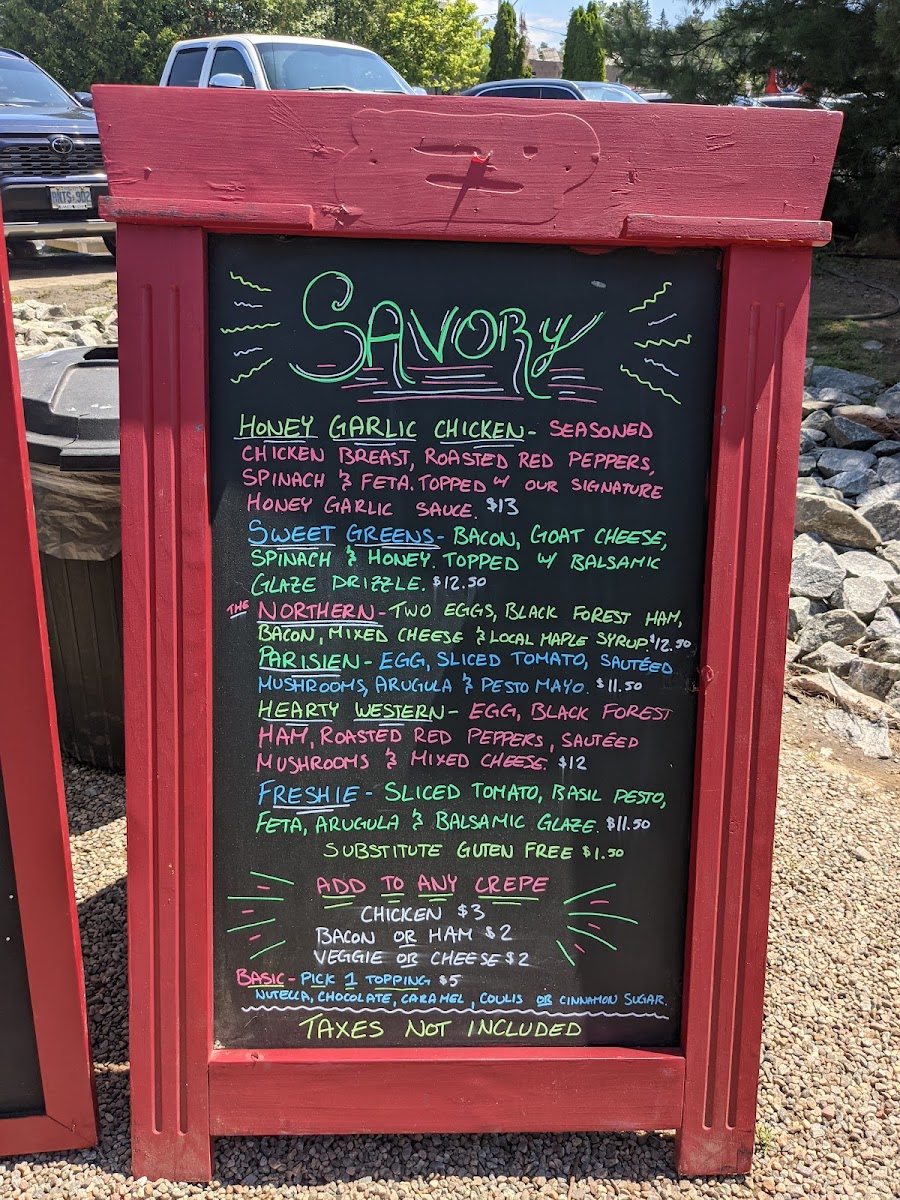 SAVORY
HONEY GARLIC CHICKEN - SEASONED
CHICKEN BREAST, ROASTED RED PEPPERS,
SPINACH & FETA. TOPPED W/ OUR SIGNATURE
HONEY GARLIC SAUCE. $13
SWEET GREENS - BACON, GOAT CHEESE,
SPINACH & HONEY. TOPPED W/ BALSAMIC
GLAZE DRIZZLE. $12.50
THE NORTHERN - TWO EGGS, BLACK FOREST HAM,
BACON, MIXED CHEESE & LOCAL MAPLE SYRUP. $12.50
PARISIEN - EGG, SLICED TOMATO, SAUTÉED
MUSHROOMS, ARUGULA & PESTO MAYO. $11.50
HEARTY WESTERN - EGG, BLACK FOREST
HAM, ROASTED RED PEPPERS, SAUTÉED
MUSHROOMS & MIXED CHEESE. $12
FRESHIE - SLICED TOMATO, BASIL PESTO,
FETA, ARUGULA & BALSAMIC GLAZE. $11.50
SUBSTITUTE GUTEN FREE $1.50
ADD TO ANY CREPE
CHICKEN $3
BACON OR HAM $2
VEGGIE OR CHEESE $2
BASIC - PICK 1 TOPPING $5
NUTELLA, CHOCOLATE, CARAMEL, COULIS OR CINNAMON SUGAR.
TAXES NOT INCLUDED